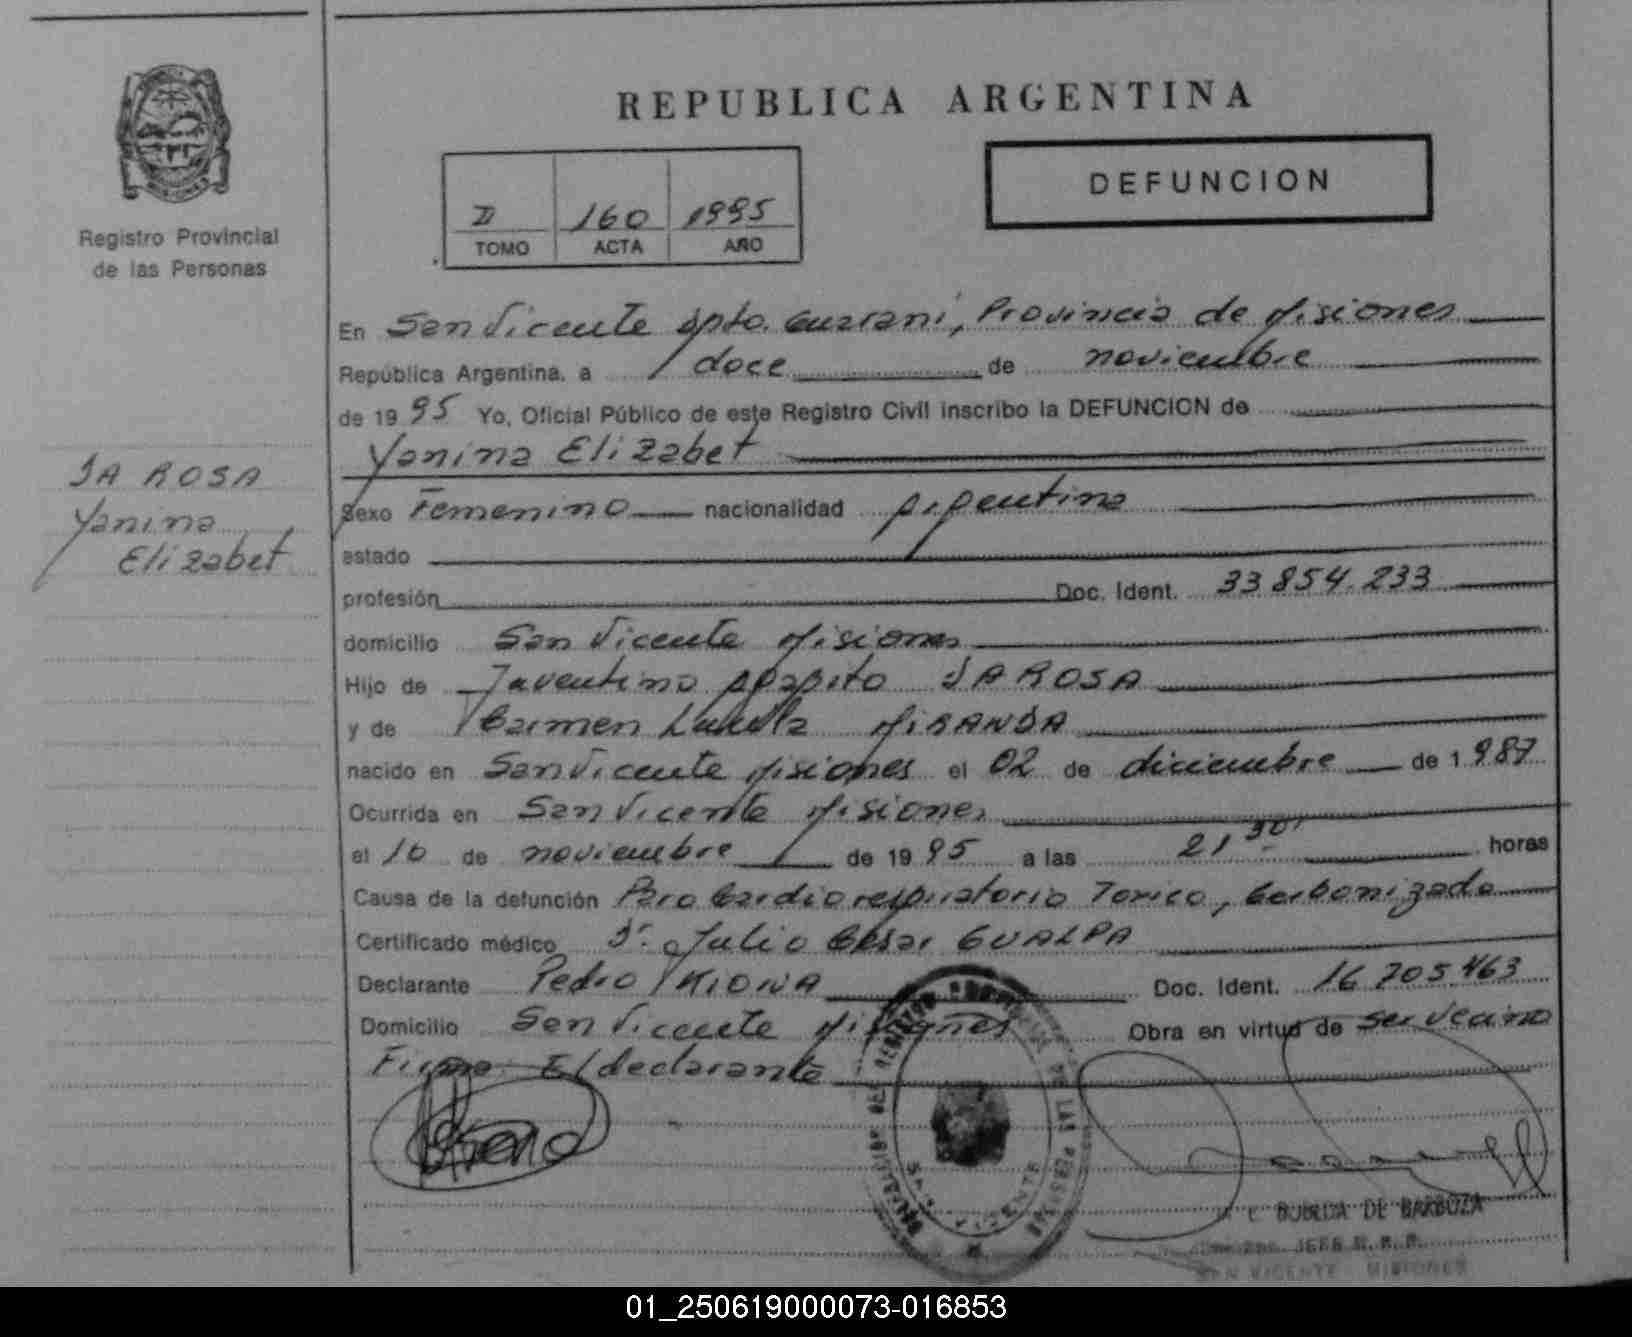 REPUBLICA ARGENTINA
DEFUNCION
Registro Provincial
de las Personas
D 160 1995
TOMO ACTA AÑO
En San Vicente Dpto. Guaraní, Provincia de Misiones
República Argentina, a doce de noviembre
de 1995 Yo, Oficial Público de este Registro Civil inscribo la DEFUNCION de
Yanina Elizabet
DA ROSA
Yanina
Elizabet
Sexo Femenino nacionalidad Argentina
estado
profesión Doc. Ident. 33 854.233
domicilio San Vicente Misiones
Hijo de Juventino Agapito DA ROSA
y de Carmen MIRANDA
nacido en San Vicente Misiones el 02 de diciembre de 1987
Ocurrida en San Vicente Misiones
el 10 de noviembre de 1995 a las 21 30' horas
Causa de la defunción Paro Cardiorespiratorio Toxico, Carbonizada
Certificado médico Dr. Julio Cesar GUALPA
Declarante Pedro Doc. Ident. 16 705.463
Domicilio San Vicente Misiones Obra en virtud de ser vecino
Firma: El declarante
DEL REGISTRO PROVINCIAL DE LAS PERSONAS
SAN VICENTE
DE BARBOZA
JEFE R.P.P.
SAN VICENTE MISIONES
01_250619000073-016853